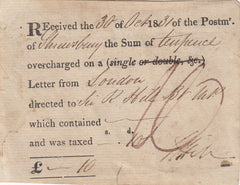 REceived the 30 of Oct 1831 of the Postmr.
of Shrewsbury the Sum of tenpence
overcharged on a (single or double, &c.)
Letter from London
directed to Sir R Hill Bt
which contained
s. d.
and was taxed 10
£ 10